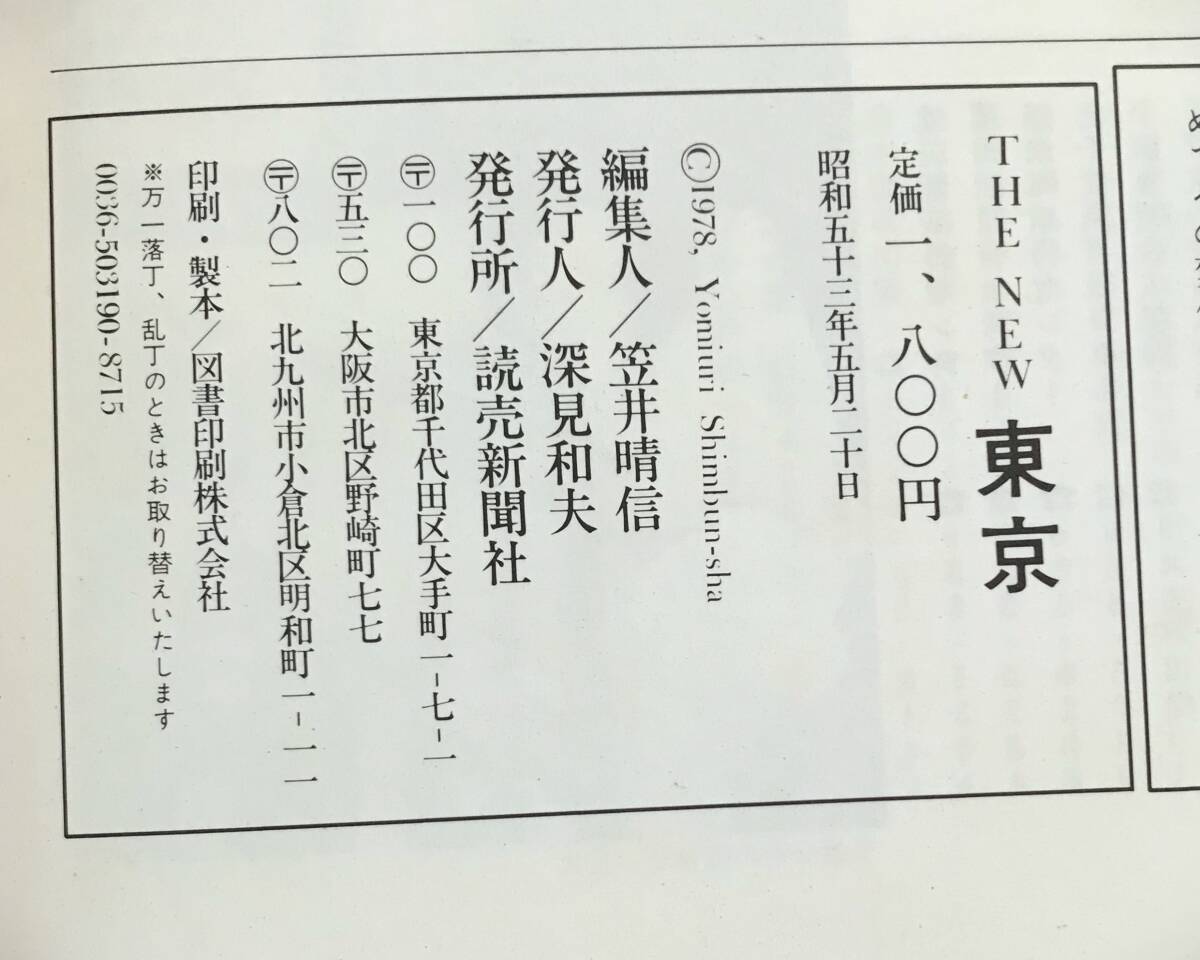 THE NEW 東京
定価 一、八〇〇円
昭和五十三年五月二十日
©1978, Yomiuri Shimbun-sha
編集人／笠井晴信
発行人／深見和夫
発行所／読売新聞社
〶一〇〇 東京都千代田区大手町一-七-一
〶五三〇 大阪市北区野崎町七七
〶八〇二 北九州市小倉北区明和町一-一一
印刷・製本／図書印刷株式会社
※万一落丁、乱丁のときはお取り替えいたします
0036-503190-8715